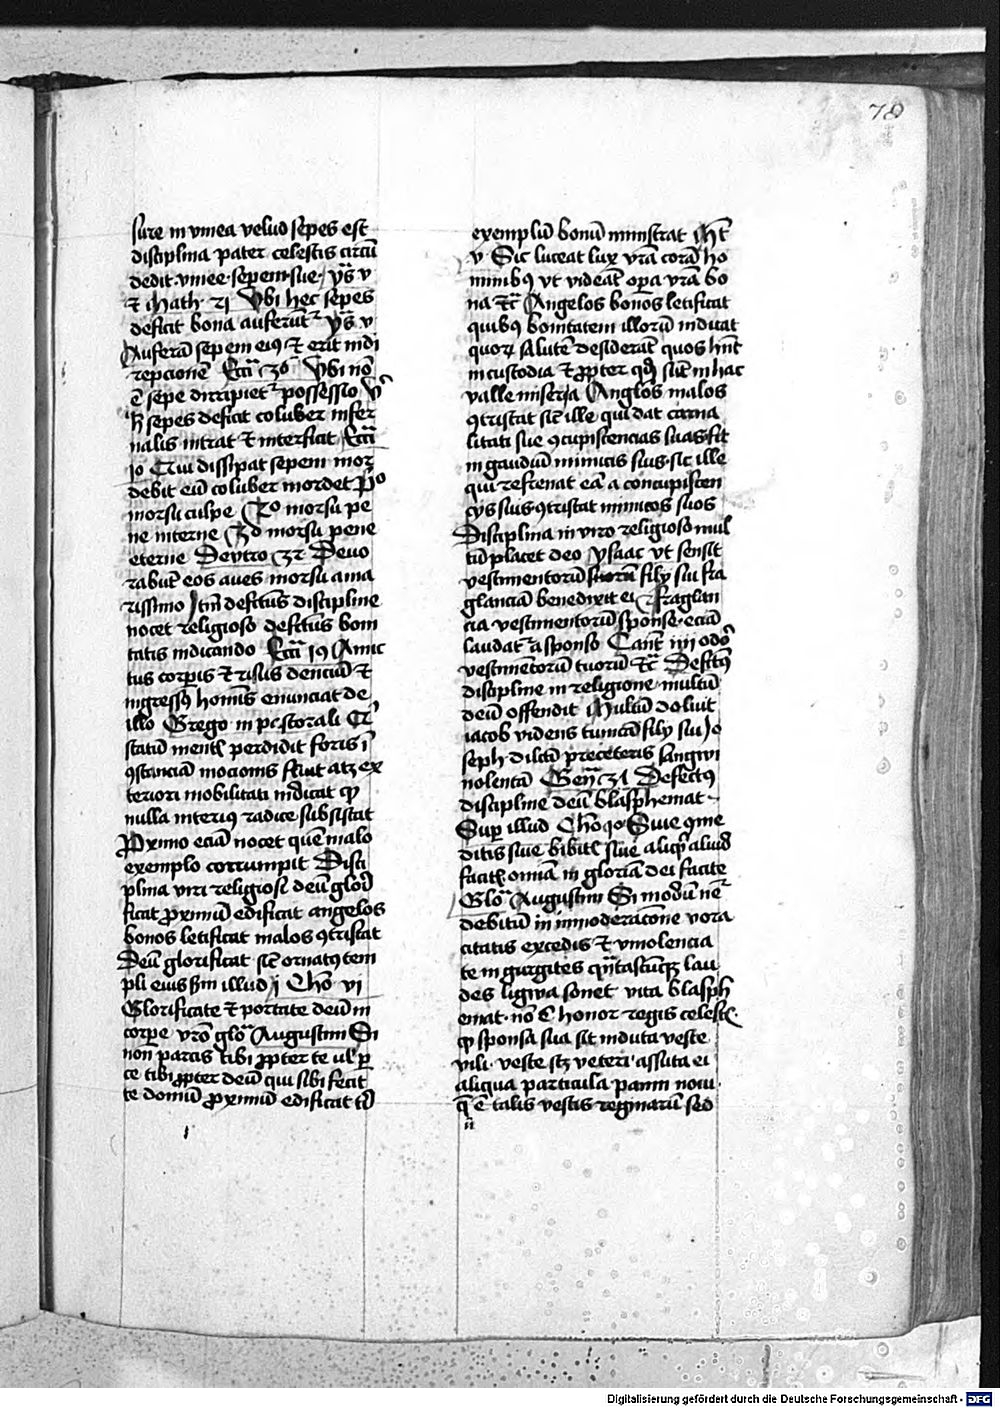 78
sure in vinea velud sepes est
disciplina pater celestis circū
dedit vinee sepem sue ysͣ v
⁊ Math xxi Vbi hec sepes
deficit bona auferūtᷣ ysͣ v
Auferā sepem eiꝰ ⁊ erit in di
repcionē Ecciͣ 36 Vbi nō
ē sepe diripietᷣ possessio
sepes deficit coluber infer
nalis intrat ⁊ interficit Ecciͣ
10 Qui dissipat sepem mor
debit eū coluber mordet pͦ
morsu culpe 2ͦ morsu pe
ne interne 3ͦ morsu pene
eterne Deutro 32 Deuo
rabūt eos aues morsu ama
rissimo Itm̄ defctūs discipline
nocet religioso defctūs boni
tatis indicando Ecciͣ 19 Amic
tus corpis ⁊ risus denciū ⁊
ingressꝰ homīs enunciat de
illo Grego in pastorali
statum mentꝭ perdidit foris ī
ꝯstanciā mocionis atqꝫ ex
teriori mobilitati indicat ꝙ
nulla interiꝰ radice subsistat
Proximo eciā nocet quem malo
exemplo corrumpit Disci
plina viri religiosi deū glori
ficat proximū edificat angelos
bonos letificat malos ꝯtristat
Deū glorificat sic̄ ornatꝰ tem
pli eius scdm illud i Chō vi
Glorificate ⁊ portate deū in
corpe vr̄o gloͣ Augustini Si
non parcis tibi ꝓpter te ul' par
ce tibi ꝓpter deū qui sibi fecit
te domū proximū edificat cū
exemplū bonū ministrat Mt̄
v Sic luceat lux vr̄a corā ho
minibꝰ vt videāt opa vr̄a bo
na ⁊c̄ Angelos bonos letificat
quibꝰ bonitatem illorū indicat
quoꝝ salutē desiderāt quos hn̄t
in custodia ⁊ ꝓpter qͦs sūt in hac
valle miseria Anglos malos
ꝯtristat sic̄ ille qui dat carna
litati sue ꝯcupiscencias suas fit
in gaudiū inimicis suis sic ille
qui refrenat eā a concupiscen
cijs suis ꝯtristat inimicos suos
Disciplina in viro religioso mul
tū placet deo ysaac vt sensit
vestimentorū suorū filij sui fra
glanciā benedixit ei ⁊ fraglan
cia vestimentorū sponse eciā
laudatᷣ a sponso Cant̄ iiij odoꝛ
vestimentorū tuorū ⁊c̄ Defctꝰ
discipline in religione multū
deū offendit Multū doluit
iacob videns tunicā filij sui Jo
seph dilc̄m preceteris sangwi
nolentā Geneͣ 37 Defectꝰ
discipline deū blasphemat
Supr illud Chō 10 Siue ꝯme
ditis siue bibitꝭ siue aliqͥd aliud
facitꝭ omnia in gloriā dei facite
Gloͣ Augustini Si modū
debitū in inmoderacōne vora
citatis excedis ⁊ vinolencia
te in gurgites qn̄tascūqꝫ lau
des ligwa sonet vita blasph
emat nō ē honor regis celestꝭ
ꝙ sponsa sua sit induta veste
vili veste scꝫ veteri assuta ei
aliqua particula panni noui
q̄ ē talis vestis reginarū sed